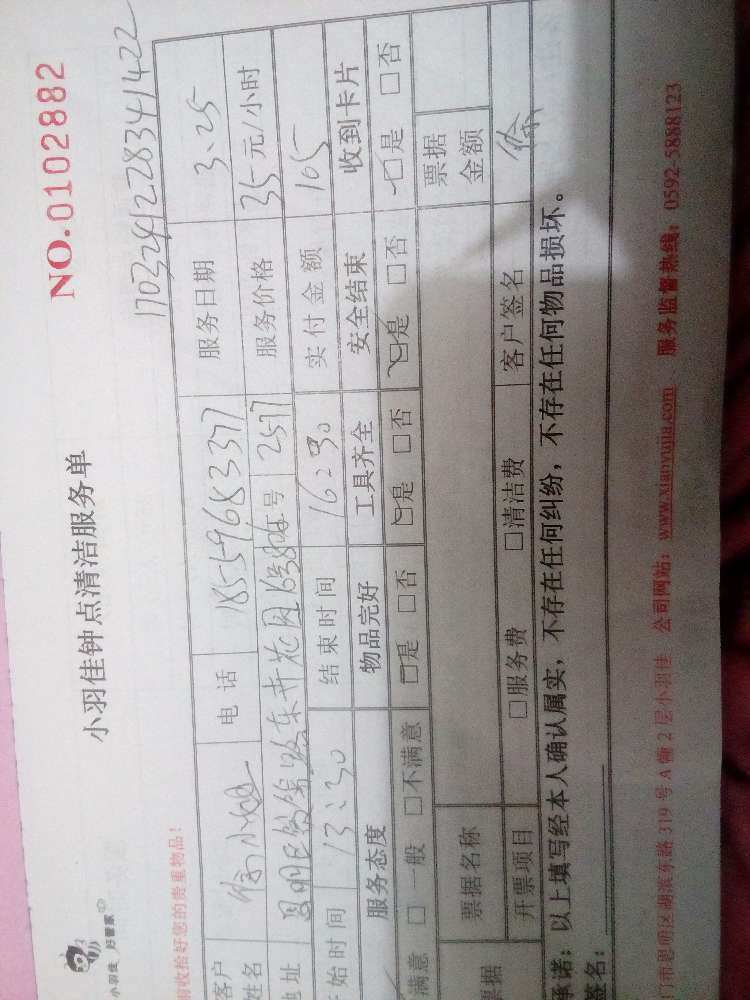 小羽佳 好管家
小羽佳钟点清洁服务单
NO.0102882
收拾好您的贵重物品！
1703241228341422
客户姓名 徐小姐 电话 18559683377 服务日期 3.25
地址 号 2577 服务价格 35元/小时
始时间 13:30 结束时间 16:30 实付金额 105
服务态度 物品完好 工具齐全 安全结束 收到卡片
满意 □一般 □不满意 □是 □否 □是 □否 □是 □否 □是 □否
票据 票据名称 票据金额
开票项目 □服务费 □清洁费 客户签名 徐
承诺：以上填写经本人确认属实，不存在任何纠纷，不存在任何物品损坏。
签名：
门市思明区湖滨东路319号A幢2层小羽佳 公司网站：www.xianyujia.com 服务监督热线：0592-5888123